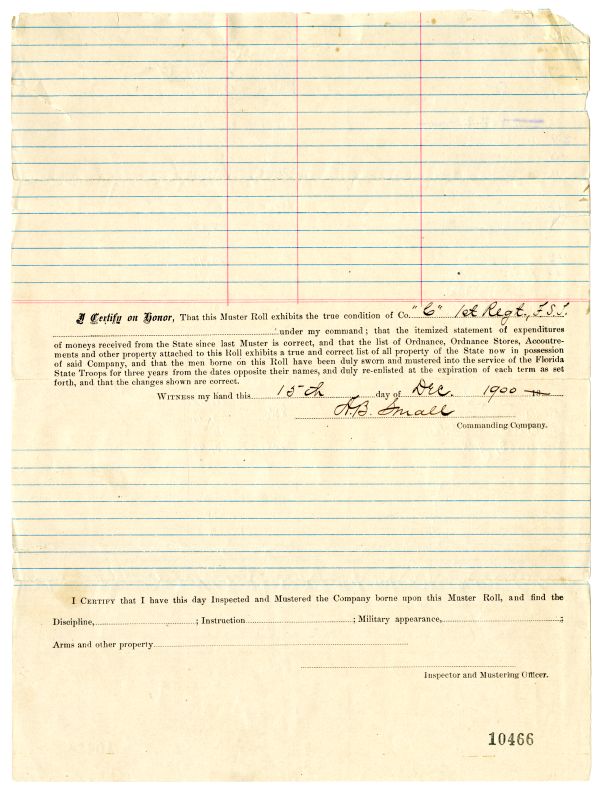 I Certify on Honor, That this Muster Roll exhibits the true condition of Co. "C" 1st Regt., F.S.T.
under my command; that the itemized statement of expenditures
of moneys received from the State since last Muster is correct, and that the list of Ordnance, Ordnance Stores, Accoutre-
ments and other property attached to this Roll exhibits a true and correct list of all property of the State now in possession
of said Company, and that the men borne on this Roll have been duly sworn and mustered into the service of the Florida
State Troops for three years from the dates opposite their names, and duly re-enlisted at the expiration of each term as set
forth, and that the changes shown are correct.
Witness my hand this 15th day of Dec. 1900 18
A.B. Small
Commanding Company.
I Certify that I have this day Inspected and Mustered the Company borne upon this Muster Roll, and find the
Discipline, ; Instruction ; Military appearance, ;
Arms and other property
Inspector and Mustering Officer.
10466